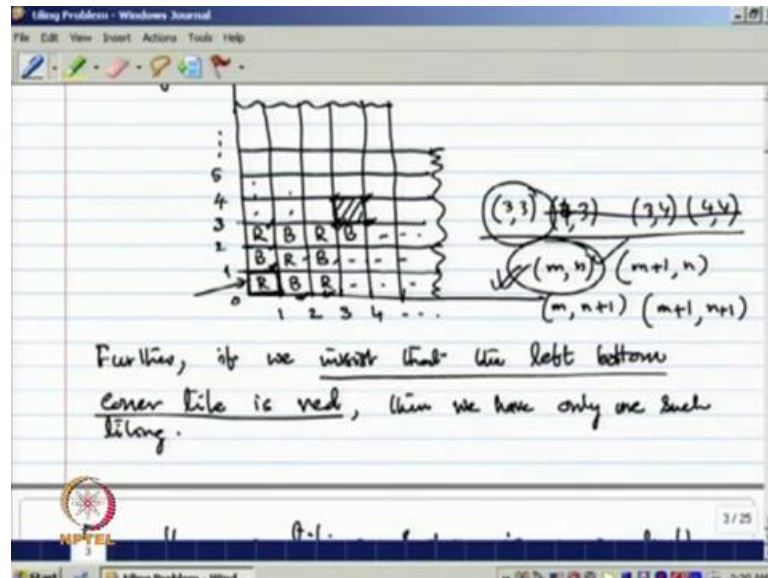 tiling Problem - Windows Journal
File Edit View Insert Actions Tools Help
5
4
3 R B R B - - -
2 B R B - - -
1 R B R - - -
0
1 2 3 4 - - -
(3,3) (4,3) (3,4) (4,4)
(m, n) (m+1, n)
(m, n+1) (m+1, n+1)
Further, if we insist that the left bottom
corner tile is red, then we have only one such
tiling.
NPTEL
3 / 25
3
Start
tiling Problem - Wind...